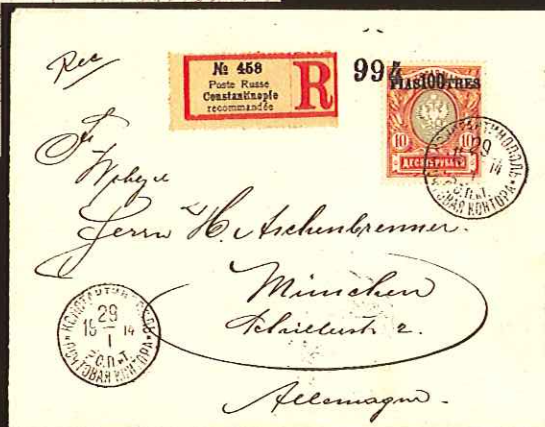 Rec
№ 458
Poste Russe
Constantinople
recommandée
R
994
PIAS100TRES
10 10
ДЕСЯТЬ РУБЛЕЙ
КОНСТАНТИНОПОЛЬ
29
I
14
Р.О.П.и.Т.
ПОЧТОВАЯ КОНТОРА
Herrn H. Aschenbrenner.
München
Schillerstr 2.
КОНСТАНТИНОПОЛЬ
29
19 14
I
Р.О.П.и.Т.
ПОЧТОВАЯ КОНТОРА
Allemagne.